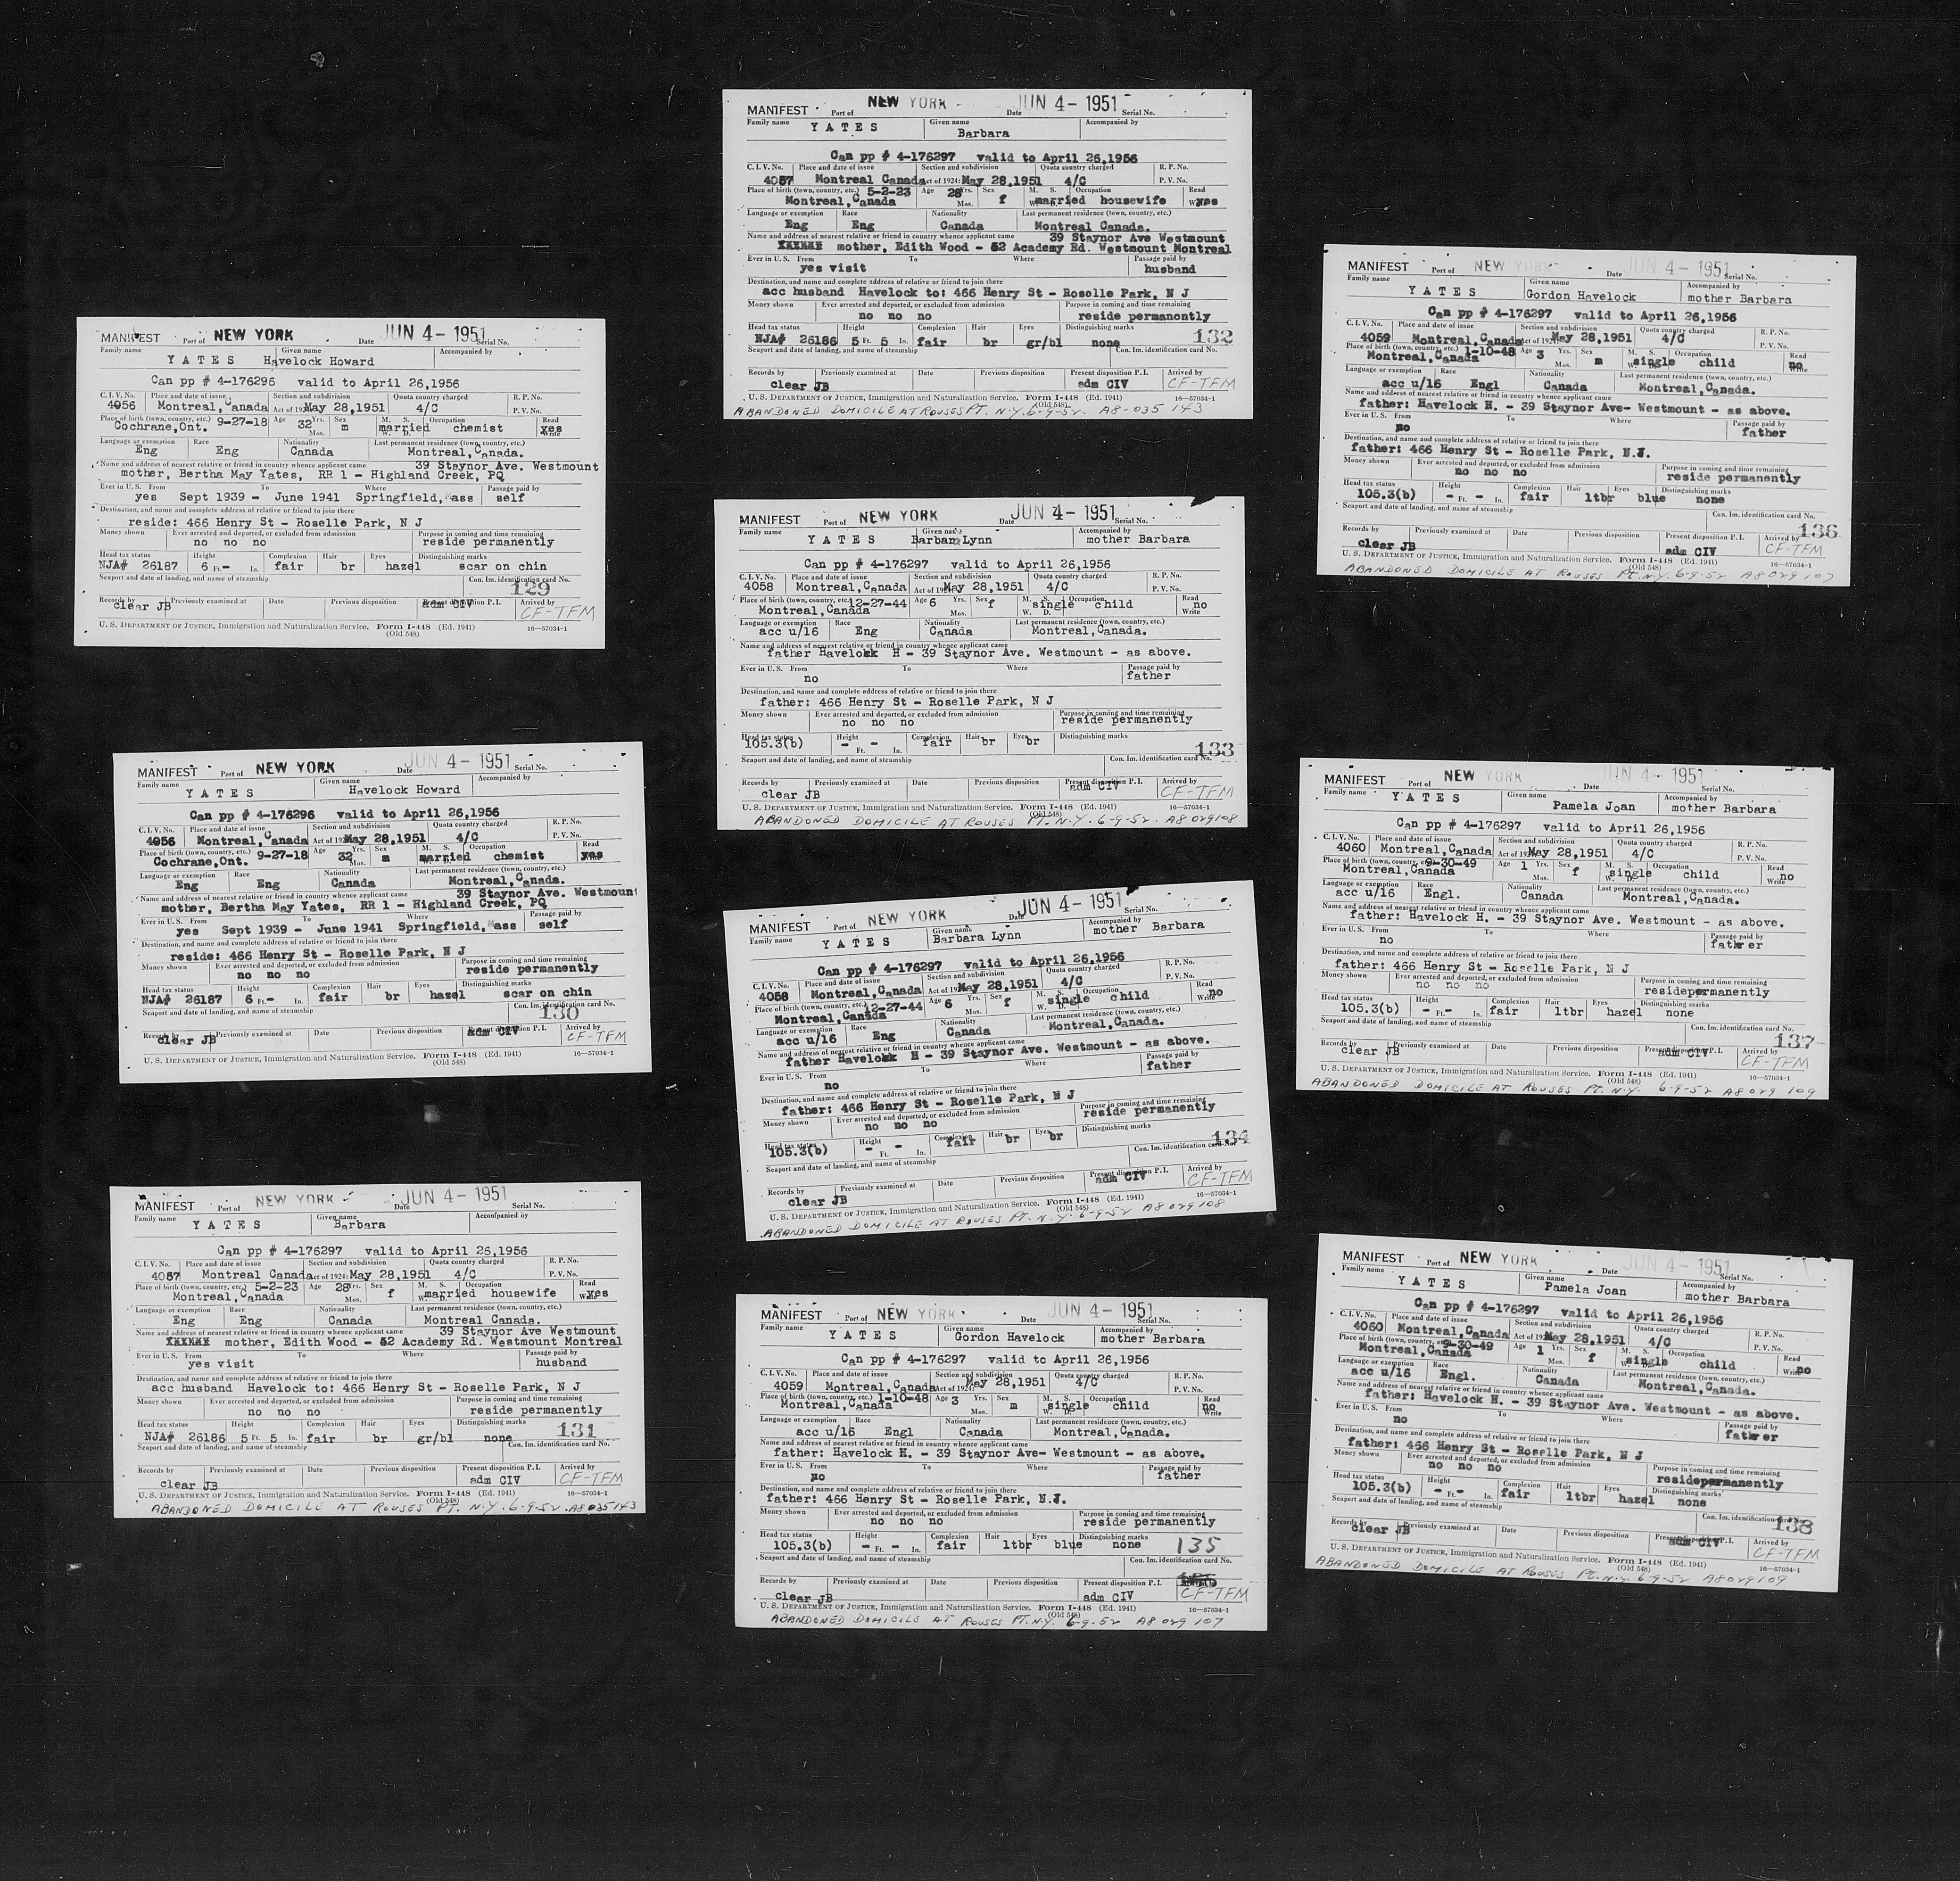 MANIFEST Port of NEW YORK Date JUN 4 - 1951 Serial No.
Family name YATES Given name Havelock Howard Accompanied by
Can pp # 4-176296 valid to April 26,1956
C. I. V. No. Place and date of issue Section and subdivision Quota country charged R. P. No.
4056 Montreal, Canada Act of 1924: May 28,1951 4/C P. V. No.
Place of birth (town, country, etc.) 9-27-18 Age 32 Yrs. Sex M. S. Occupation Read
Cochrane,Ont. Mos. m married W. D. chemist yes Write
Language or exemption Race Nationality Last permanent residence (town, country, etc.)
Eng Eng Canada Montreal,Canada.
Name and address of nearest relative or friend in country whence applicant came 39 Staynor Ave. Westmount
mother, Bertha May Yates, RR 1 - Highland Creek, PQ
Ever in U. S. From To Where Passage paid by
yes Sept 1939 - June 1941 Springfield, Mass self
Destination, and name and complete address of relative or friend to join there
reside: 466 Henry St - Roselle Park, N J
Money shown Ever arrested and deported, or excluded from admission Purpose in coming and time remaining
no no no reside permanently
Head tax status Height Complexion Hair Eyes Distinguishing marks
NJA# 26187 6 Ft. - In. fair br hazel scar on chin
Seaport and date of landing, and name of steamship Con. Im. identification card No.
129
Records by Previously examined at Date Previous disposition Present disposition P. I. Arrived by
clear JB adm CIV CF-TFM
U. S. DEPARTMENT OF JUSTICE, Immigration and Naturalization Service. Form I-448 (Ed. 1941) 16—57034-1
(Old 548)
MANIFEST Port of NEW YORK Date JUN 4 - 1951 Serial No.
Family name YATES Given name Havelock Howard Accompanied by
Can pp # 4-176296 valid to April 26,1956
C. I. V. No. Place and date of issue Section and subdivision Quota country charged R. P. No.
4056 Montreal, Canada Act of 1924: May 28,1951 4/C P. V. No.
Place of birth (town, country, etc.) 9-27-18 Age 32 Yrs. Sex M. S. Occupation Read
Cochrane,Ont. Mos. m married W. D. chemist yes Write
Language or exemption Race Nationality Last permanent residence (town, country, etc.)
Eng Eng Canada Montreal,Canada.
Name and address of nearest relative or friend in country whence applicant came 39 Staynor Ave. Westmount
mother, Bertha May Yates, RR 1 - Highland Creek, PQ
Ever in U. S. From To Where Passage paid by
yes Sept 1939 - June 1941 Springfield, Mass self
Destination, and name and complete address of relative or friend to join there
reside: 466 Henry St - Roselle Park, N J
Money shown Ever arrested and deported, or excluded from admission Purpose in coming and time remaining
no no no reside permanently
Head tax status Height Complexion Hair Eyes Distinguishing marks
NJA# 26187 6 Ft. - In. fair br hazel scar on chin
Seaport and date of landing, and name of steamship Con. Im. identification card No.
130
Records by Previously examined at Date Previous disposition Present disposition P. I. Arrived by
clear JB adm CIV CF-TFM
U. S. DEPARTMENT OF JUSTICE, Immigration and Naturalization Service. Form I-448 (Ed. 1941) 16—57034-1
(Old 548)
MANIFEST Port of NEW YORK Date JUN 4 - 1951 Serial No.
Family name YATES Given name Barbara Accompanied by
Can pp # 4-176297 valid to April 26,1956
C. I. V. No. Place and date of issue Section and subdivision Quota country charged R. P. No.
4057 Montreal Canada Act of 1924: May 28,1951 4/C P. V. No.
Place of birth (town, country, etc.) 5-2-23 Age 28 Yrs. Sex M. S. Occupation Read
Montreal,Canada Mos. f married W. D. housewife yes Write
Language or exemption Race Nationality Last permanent residence (town, country, etc.)
Eng Eng Canada Montreal Canada.
Name and address of nearest relative or friend in country whence applicant came 39 Staynor Ave Westmount
mother, Edith Wood - 52 Academy Rd. Westmount Montreal
Ever in U. S. From To Where Passage paid by
yes visit husband
Destination, and name and complete address of relative or friend to join there
acc husband Havelock to: 466 Henry St - Roselle Park, N J
Money shown Ever arrested and deported, or excluded from admission Purpose in coming and time remaining
no no no reside permanently
Head tax status Height Complexion Hair Eyes Distinguishing marks
NJA# 26186 5 Ft. 5 In. fair br gr/bl none 131
Seaport and date of landing, and name of steamship Con. Im. identification card No.
Records by Previously examined at Date Previous disposition Present disposition P. I. Arrived by
clear JB adm CIV CF-TFM
U. S. DEPARTMENT OF JUSTICE, Immigration and Naturalization Service. Form I-448 (Ed. 1941) 16—57034-1
(Old 548)
ABANDONED DOMICILE AT ROUSES PT. N.Y. 6-9-52. A8 035 143
MANIFEST Port of NEW YORK Date JUN 4 - 1951 Serial No.
Family name YATES Given name Barbara Accompanied by
Can pp # 4-176297 valid to April 26,1956
C. I. V. No. Place and date of issue Section and subdivision Quota country charged R. P. No.
4057 Montreal Canada Act of 1924: May 28,1951 4/C P. V. No.
Place of birth (town, country, etc.) 5-2-23 Age 28 Yrs. Sex M. S. Occupation Read
Montreal,Canada Mos. f married W. D. housewife yes Write
Language or exemption Race Nationality Last permanent residence (town, country, etc.)
Eng Eng Canada Montreal Canada.
Name and address of nearest relative or friend in country whence applicant came 39 Staynor Ave Westmount
mother, Edith Wood - 52 Academy Rd. Westmount Montreal
Ever in U. S. From To Where Passage paid by
yes visit husband
Destination, and name and complete address of relative or friend to join there
acc husband Havelock to: 466 Henry St - Roselle Park, N J
Money shown Ever arrested and deported, or excluded from admission Purpose in coming and time remaining
no no no reside permanently
Head tax status Height Complexion Hair Eyes Distinguishing marks
NJA# 26186 5 Ft. 5 In. fair br gr/bl none 132
Seaport and date of landing, and name of steamship Con. Im. identification card No.
Records by Previously examined at Date Previous disposition Present disposition P. I. Arrived by
clear JB adm CIV CF-TFM
U. S. DEPARTMENT OF JUSTICE, Immigration and Naturalization Service. Form I-448 (Ed. 1941) 16—57034-1
(Old 548)
ABANDONED DOMICILE AT ROUSES PT. N.Y. 6-9-52. A8-035 143
MANIFEST Port of NEW YORK Date JUN 4 - 1951 Serial No.
Family name YATES Given name Barbara Lynn Accompanied by mother Barbara
Can pp # 4-176297 valid to April 26,1956
C. I. V. No. Place and date of issue Section and subdivision Quota country charged R. P. No.
4058 Montreal,Canada Act of 1924: May 28,1951 4/C P. V. No.
Place of birth (town, country, etc.) 12-27-44 Age 6 Yrs. Sex f M. S. Occupation Read
Montreal,Canada Mos. single W. D. child no Write
Language or exemption Race Nationality Last permanent residence (town, country, etc.)
acc u/16 Eng Canada Montreal,Canada.
Name and address of nearest relative or friend in country whence applicant came
father Havelock H - 39 Staynor Ave. Westmount - as above.
Ever in U. S. From To Where Passage paid by
no father
Destination, and name and complete address of relative or friend to join there
father: 466 Henry St - Roselle Park, N J
Money shown Ever arrested and deported, or excluded from admission Purpose in coming and time remaining
no no no reside permanently
Head tax status Height Complexion Hair Eyes Distinguishing marks
105.3(b) - Ft. - In. fair br br 133
Seaport and date of landing, and name of steamship Con. Im. identification card No.
Records by Previously examined at Date Previous disposition Present disposition P. I. Arrived by
clear JB adm CIV CF-TFM
U. S. DEPARTMENT OF JUSTICE, Immigration and Naturalization Service. Form I-448 (Ed. 1941) 16—57034-1
(Old 548)
ABANDONED DOMICILE AT ROUSES PT. N.Y. 6-9-52. A8 029108
MANIFEST Port of NEW YORK Date JUN 4 - 1951 Serial No.
Family name YATES Given name Barbara Lynn Accompanied by mother Barbara
Can pp # 4-176297 valid to April 26,1956
C. I. V. No. Place and date of issue Section and subdivision Quota country charged R. P. No.
4058 Montreal,Canada Act of 1924: May 28,1951 4/C P. V. No.
Place of birth (town, country, etc.) 12-27-44 Age 6 Yrs. Sex f M. S. Occupation Read
Montreal,Canada Mos. single W. D. child no Write
Language or exemption Race Nationality Last permanent residence (town, country, etc.)
acc u/16 Eng Canada Montreal,Canada.
Name and address of nearest relative or friend in country whence applicant came
father Havelock H - 39 Staynor Ave. Westmount - as above.
Ever in U. S. From To Where Passage paid by
no father
Destination, and name and complete address of relative or friend to join there
father: 466 Henry St - Roselle Park, N J
Money shown Ever arrested and deported, or excluded from admission Purpose in coming and time remaining
no no no reside permanently
Head tax status Height Complexion Hair Eyes Distinguishing marks
105.3(b) - Ft. - In. fair br br 134
Seaport and date of landing, and name of steamship Con. Im. identification card No.
Records by Previously examined at Date Previous disposition Present disposition P. I. Arrived by
clear JB adm CIV CF-TFM
U. S. DEPARTMENT OF JUSTICE, Immigration and Naturalization Service. Form I-448 (Ed. 1941) 16—57034-1
(Old 548)
ABANDONED DOMICILE AT ROUSES PT. N.Y. 6-9-52 A8 029108
MANIFEST Port of NEW YORK Date JUN 4 - 1951 Serial No.
Family name YATES Given name Gordon Havelock Accompanied by mother Barbara
Can pp # 4-176297 valid to April 26,1956
C. I. V. No. Place and date of issue Section and subdivision Quota country charged R. P. No.
4059 Montreal,Canada Act of 1924: May 28,1951 4/C P. V. No.
Place of birth (town, country, etc.) 1-10-48 Age 3 Yrs. Sex M. S. Occupation Read
Montreal,Canada Mos. m single W. D. child no Write
Language or exemption Race Nationality Last permanent residence (town, country, etc.)
acc u/16 Engl Canada Montreal,Canada.
Name and address of nearest relative or friend in country whence applicant came
father: Havelock H. - 39 Staynor Ave- Westmount - as above.
Ever in U. S. From To Where Passage paid by
no father
Destination, and name and complete address of relative or friend to join there
father: 466 Henry St - Roselle Park, N.J.
Money shown Ever arrested and deported, or excluded from admission Purpose in coming and time remaining
no no no reside permanently
Head tax status Height Complexion Hair Eyes Distinguishing marks
105.3(b) - Ft. - In. fair ltbr blue none 135
Seaport and date of landing, and name of steamship Con. Im. identification card No.
Records by Previously examined at Date Previous disposition Present disposition P. I.
clear JB adm CIV CF-TFM
U. S. DEPARTMENT OF JUSTICE, Immigration and Naturalization Service. Form I-448 (Ed. 1941) 16—57034-1
(Old 548)
ABANDONED DOMICILE AT ROUSES PT. N.Y. 6-9-52 A8 029 107
MANIFEST Port of NEW YORK Date JUN 4 - 1951 Serial No.
Family name YATES Given name Gordon Havelock Accompanied by mother Barbara
Can pp # 4-176297 valid to April 26,1956
C. I. V. No. Place and date of issue Section and subdivision Quota country charged R. P. No.
4059 Montreal,Canada Act of 1924: May 28,1951 4/C P. V. No.
Place of birth (town, country, etc.) 1-10-48 Age 3 Yrs. Sex M. S. Occupation Read
Montreal,Canada Mos. m single W. D. child no Write
Language or exemption Race Nationality Last permanent residence (town, country, etc.)
acc u/16 Engl Canada Montreal,Canada.
Name and address of nearest relative or friend in country whence applicant came
father: Havelock H. - 39 Staynor Ave- Westmount - as above.
Ever in U. S. From To Where Passage paid by
no father
Destination, and name and complete address of relative or friend to join there
father: 466 Henry St - Roselle Park, N.J.
Money shown Ever arrested and deported, or excluded from admission Purpose in coming and time remaining
no no no reside permanently
Head tax status Height Complexion Hair Eyes Distinguishing marks
105.3(b) - Ft. - In. fair ltbr blue none
Seaport and date of landing, and name of steamship Con. Im. identification card No.
136
Records by Previously examined at Date Previous disposition Present disposition P. I. Arrived by
clear JB adm CIV CF-TFM
U. S. DEPARTMENT OF JUSTICE, Immigration and Naturalization Service. Form I-448 (Ed. 1941) 16—57034-1
(Old 548)
ABANDONED DOMICILE AT ROUSES PT. N.Y. 6-9-52 A8 029 107
MANIFEST Port of NEW YORK Date JUN 4 - 1951 Serial No.
Family name YATES Given name Pamela Joan Accompanied by mother Barbara
Can pp # 4-176297 valid to April 26,1956
C. I. V. No. Place and date of issue Section and subdivision Quota country charged R. P. No.
4060 Montreal,Canada Act of 1924: May 28,1951 4/C P. V. No.
Place of birth (town, country, etc.) 9-30-49 Age 1 Yrs. Sex M. S. Occupation Read
Montreal,Canada Mos. f single W. D. child no Write
Language or exemption Race Nationality Last permanent residence (town, country, etc.)
acc u/16 Engl. Canada Montreal,Canada.
Name and address of nearest relative or friend in country whence applicant came
father: Havelock H. - 39 Staynor Ave. Westmount - as above.
Ever in U. S. From To Where Passage paid by
no father
Destination, and name and complete address of relative or friend to join there
father: 466 Henry St - Roselle Park, N J
Money shown Ever arrested and deported, or excluded from admission Purpose in coming and time remaining
no no no residepermanently
Head tax status Height Complexion Hair Eyes Distinguishing marks
105.3(b) - Ft. - In. fair ltbr hazel none
Seaport and date of landing, and name of steamship Con. Im. identification card No.
137
Records by Previously examined at Date Previous disposition Present disposition P. I. Arrived by
clear JB adm CIV CF-TFM
U. S. DEPARTMENT OF JUSTICE, Immigration and Naturalization Service. Form I-448 (Ed. 1941) 16—57034-1
(Old 548)
ABANDONED DOMICILE AT ROUSES PT. N.Y. 6-9-52 A8 029 109
MANIFEST Port of NEW YORK Date JUN 4 - 1951 Serial No.
Family name YATES Given name Pamela Joan Accompanied by mother Barbara
Can pp # 4-176297 valid to April 26,1956
C. I. V. No. Place and date of issue Section and subdivision Quota country charged R. P. No.
4060 Montreal,Canada Act of 1924: May 28,1951 4/C P. V. No.
Place of birth (town, country, etc.) 9-30-49 Age 1 Yrs. Sex M. S. Occupation Read
Montreal,Canada Mos. f single W. D. child no Write
Language or exemption Race Nationality Last permanent residence (town, country, etc.)
acc u/16 Engl. Canada Montreal,Canada.
Name and address of nearest relative or friend in country whence applicant came
father: Havelock H. - 39 Staynor Ave. Westmount - as above.
Ever in U. S. From To Where Passage paid by
no father
Destination, and name and complete address of relative or friend to join there
father: 466 Henry St - Roselle Park, N J
Money shown Ever arrested and deported, or excluded from admission Purpose in coming and time remaining
no no no residepermanently
Head tax status Height Complexion Hair Eyes Distinguishing marks
105.3(b) - Ft. - In. fair ltbr hazel none
Seaport and date of landing, and name of steamship Con. Im. identification card No.
138
Records by Previously examined at Date Previous disposition Present disposition P. I. Arrived by
clear JB adm CIV CF-TFM
U. S. DEPARTMENT OF JUSTICE, Immigration and Naturalization Service. Form I-448 (Ed. 1941) 16—57034-1
(Old 548)
ABANDONED DOMICILE AT ROUSES PT. N.Y. 6-9-52 A8029109